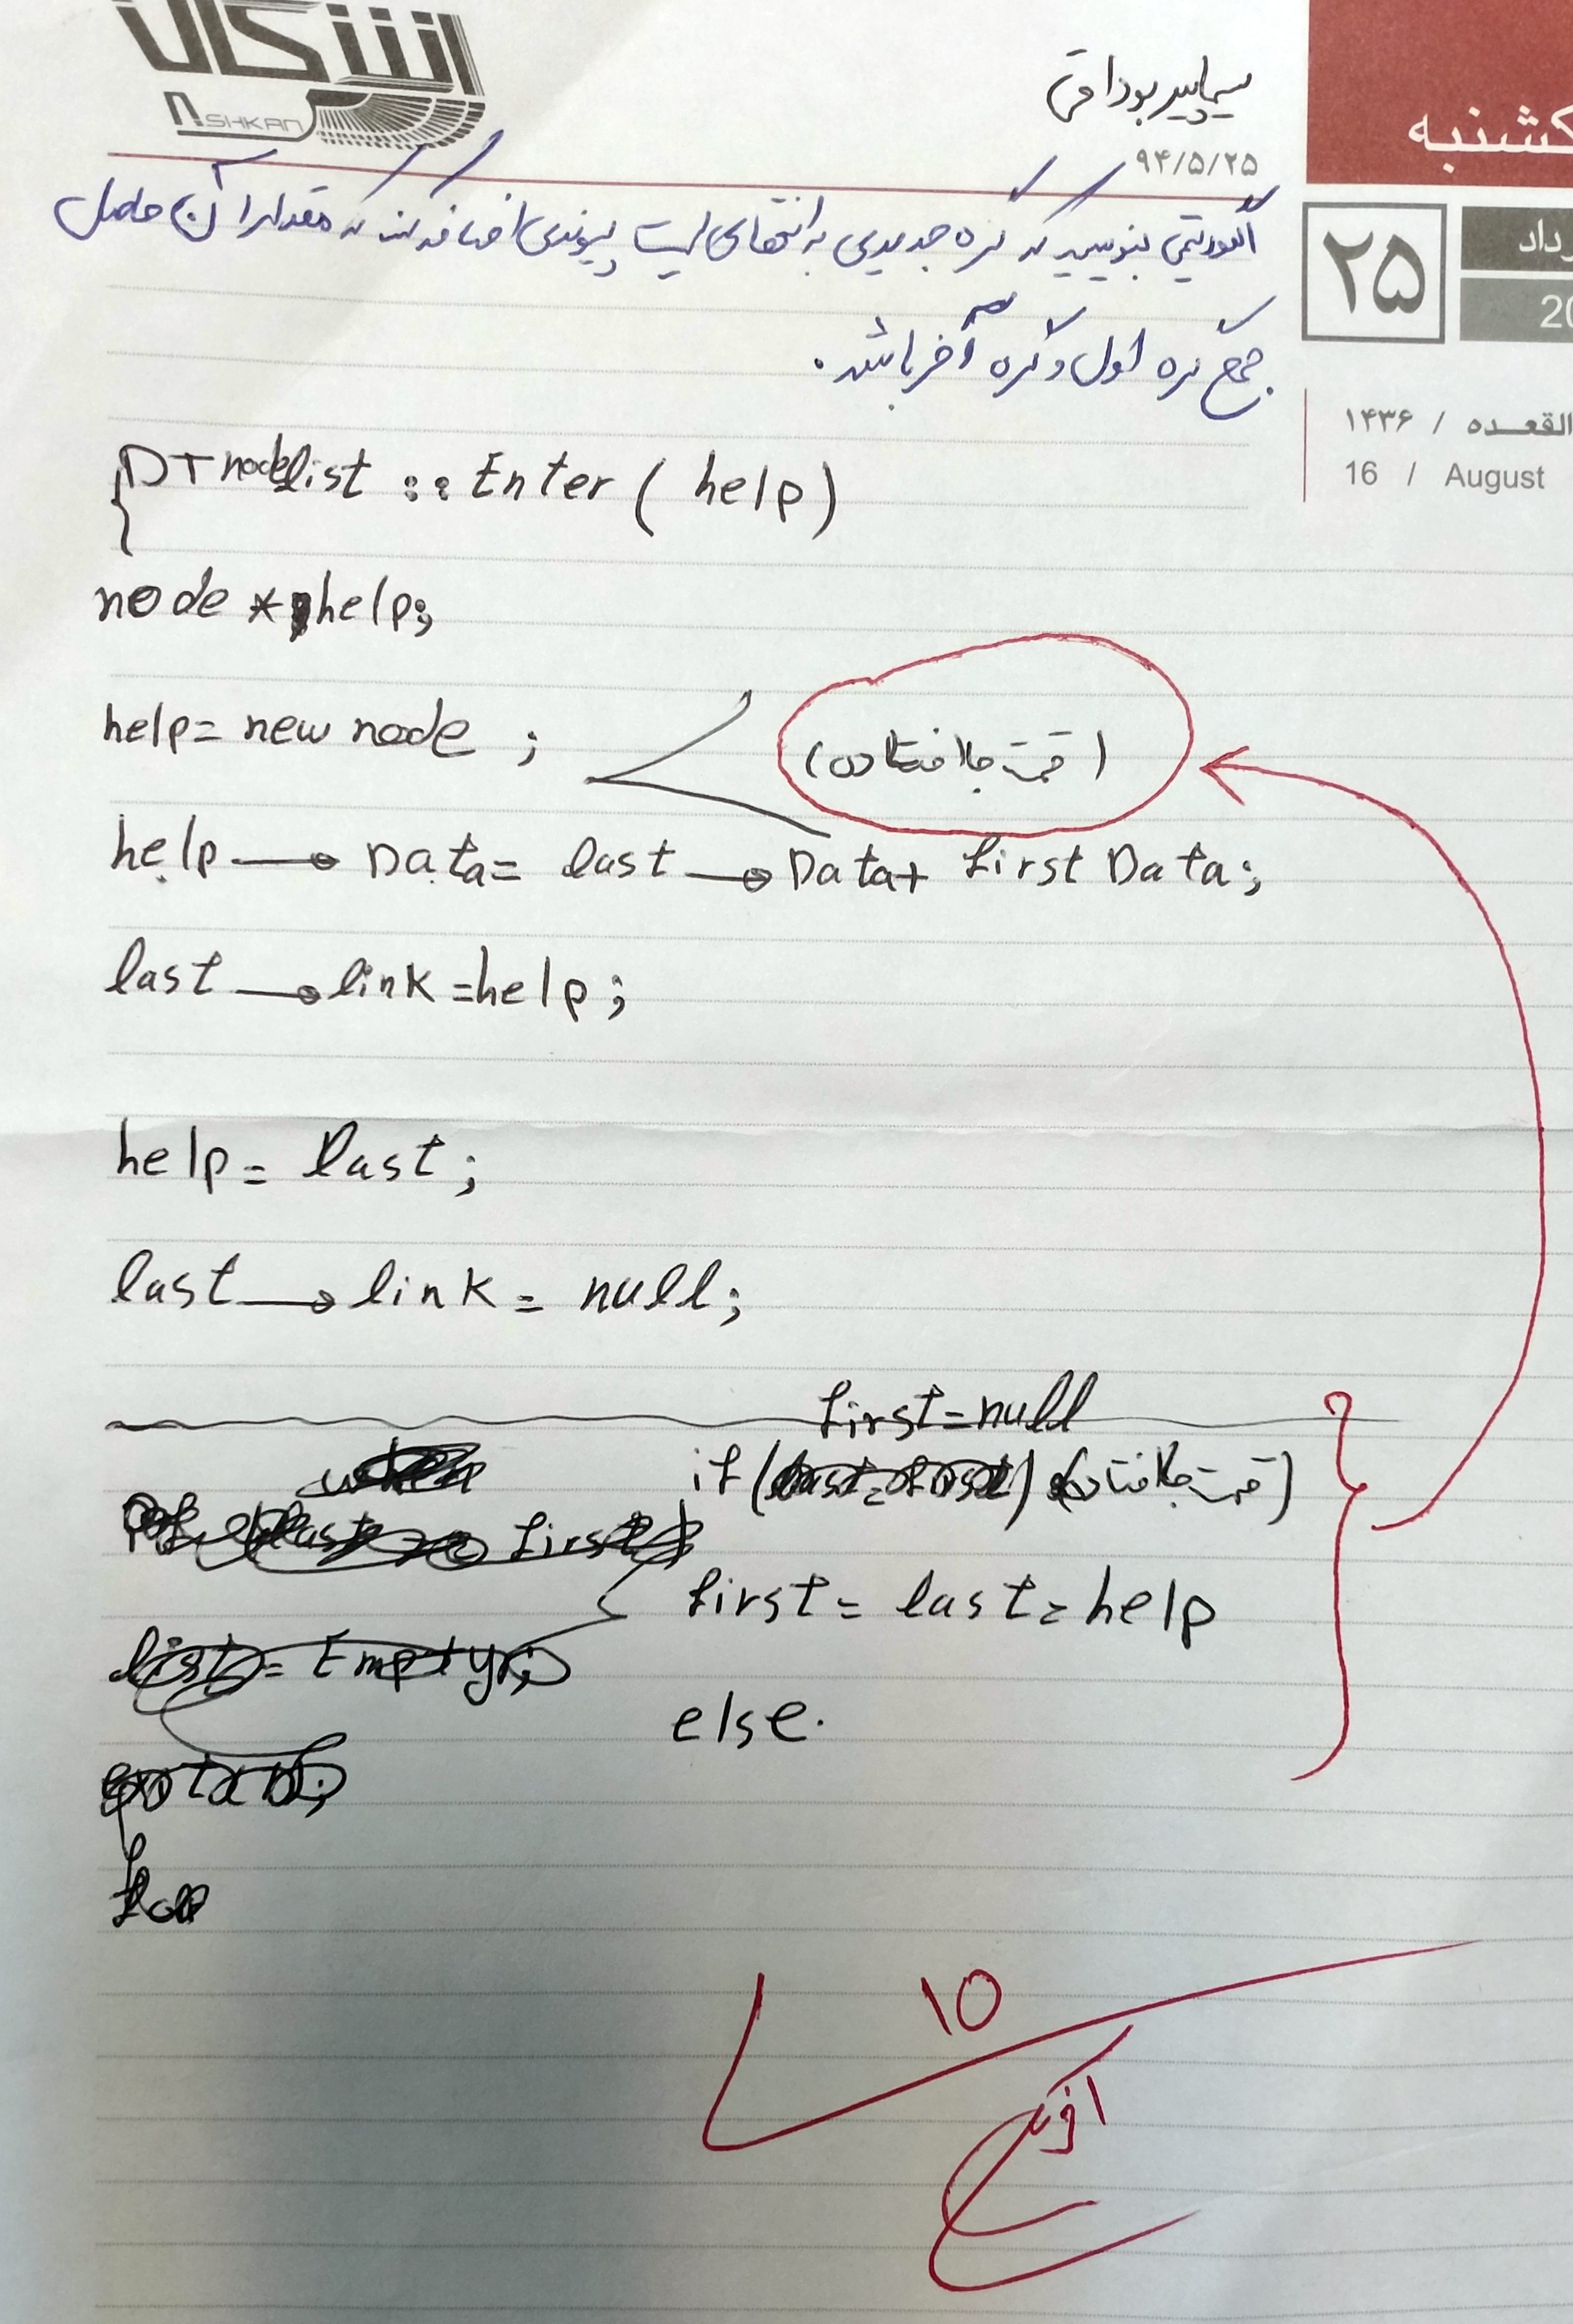 اشکان
ASHKAN
یکشنبه
۹۴/۵/۲۵
۲۵
رداد
20
القعـده / ۱۴۳۶
16 / August
الگوریتمی بنویسید که گره جدیدی به انتهای لیست پیوندی اضافه کند که مقدار آن حاصل
جمع گره اول و گره آخر باشد.
DT nodelist :: Enter ( help )
{
node * help;
help = new node ;
(قسمت جا افتاده)
help → Data = last → Data + first Data ;
last → link = help ;
help = last ;
last → link = null ;
first = null
if ( ) (قسمت جا افتاده)
first = last = help
else.
۱۵